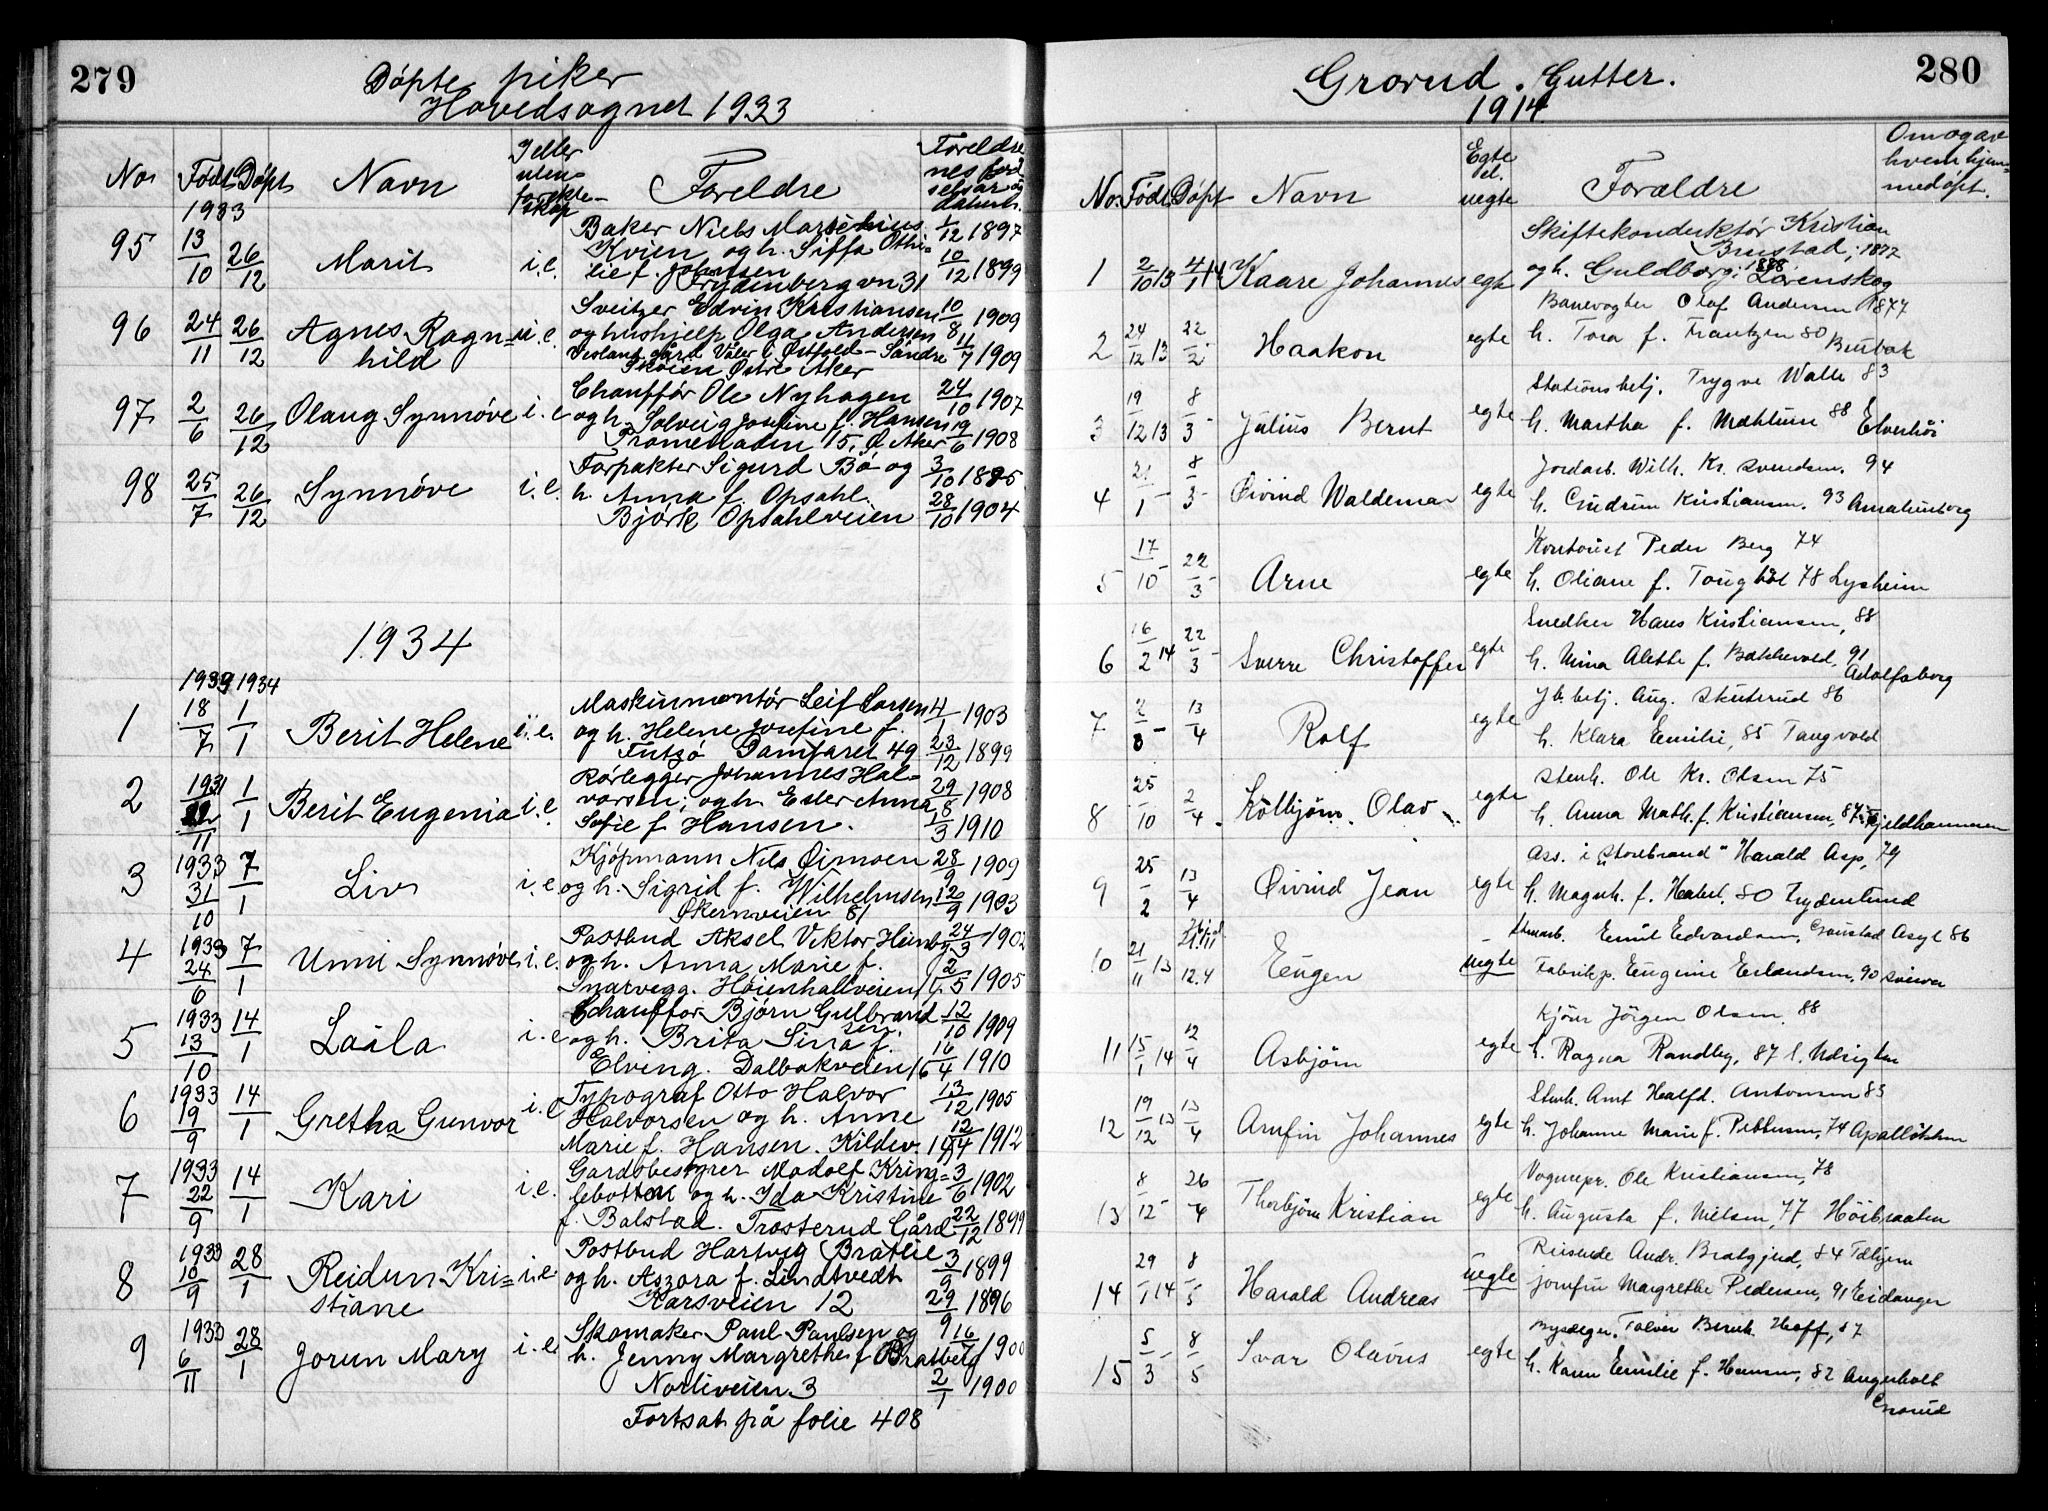 279
Døpte piker
Hovedsognet 1933
No Født Døpt Navn I eller uten- forekte- skap Foreldre Foreldre nes fød selsår og datum.
1933
95 13/10 26/12 Marit i.e. Baker Niels Marsenius 1/12 1897
Kvien og h. Siffa Othi- 10/12 1899
lie f. Johnsen
Frydenbergvn 31
96 24/11 26/12 Agnes Ragn= i.e. Sveitzer Edvin Kristiansen 10/8 1909
hild og hushjelp Olga Andersen 11/7 1909
gård Våler i Østfold - Søndre
Skøien Østre Aker
97 2/6 26/12 Olaug Synnøve i.e Chauffør Ole Nyhagen 24/10 1907
og h. Solveig Josefine f. Hansen 19/6 1908
Promenaden 15, Ø. Aker
98 25/7 26/12 Synnøve i.e. Forpakter Sigurd Bø og 3/10 1895
h. Anna f. Opsahl. 28/10 1904
Bjørk Opsahlveien
1934
1933 1934
1 18/7 1/1 Berit Helene i.e. Maskinmontør Leif Larsen 4/1 1903
og h. Helene Josefine f. 23/12 1899
Futsø Damfaret 49
2 1931 22/11 1/1 Berit Eugenia i.e. Rørlegger Johannes Hal- 29/8 1908
vorsen, og h. Ester Anna
Sofie f Hansen. 18/3 1910
3 1933 31/10 7/1 Liv i.e Kjøpmann Nils Øimoen 28/9 1909
og h. Sigrid f. Wilhelmsen 12/9 1903
Økernveien 81
4 1933 24/6 7/1 Unni Synnøve i.e. Postbud Aksel Viktor Heinby 24/3 1902
og h. Anna Marie f. 2/5 1905
Snarvegg. Høienhallveien 14
5 1933 13/10 14/1 Laila i.e Chauffør Bjørn Gulbrand 12/10 1909
sen.
og h. Brita Sina f. 16/4 1910
Elving. Dalbakveien 16
6 1933 19/9 14/1 Gretha Gunvor i.e Typograf Otto Halvor 13/12 1905
Halvorsen og h. Anne
Marie f. Hansen. Kildev. 19 12/4 1912
7 1933 22/9 14/1 Kari i.e. Gårdsbestyrer Madolf Kring= 3/6 1902
lebotten og h. Ida Kristine
f. Balstad. Trosterud Gård 22/12 1899
8 1933 10/9 28/1 Reidun Kri= i.e. Postbud Hartvig Bratlie 3/9 1899
stiane og h. Aszora f. Lindtvedt
Karsveien 12 29/9 1896
9 1933 6/11 28/1 Jorun Mary i.e. Skomaker Paul Paulsen og 16/7 1900
h. Jenny Margrethe f Bratberg
Nordliveien 3 2/1 1900
Fortsat på folie 408
280
Grorud. Gutter.
1914
No. Født Døpt Navn Egte el. uegte Forældre Om og av hvem hjem- medøpt.
1 2/10 13 4/1 14 Kaare Johannes egte Skiftekonduktør Kristian
Brustad, 1877
og h. Guldborg, 1888 Lørenskog
2 24/12 13 22/2 Haakon egte Banevogter Olaf Andersen 1877
h. Tora f. Frantzen 80 Bu­rbak
3 19/12 13 8/3 Julius Bernt egte Stationsbetj. Trygve Walle 83
h. Martha f. Mæhlum 88 Elverhøi
4 2/1 8/3 Øivind Waldemar egte Jordarb. Wilh. Kr. Svendsen, 94
h. Gudrun Kristiansen, 93 Amalienborg
5 17/10 22/3 Arne egte Kontorist Peder Berg 74
h. Oliane f. Tougbøl 78 Lysheim
6 16/2 14 22/3 Sverre Christoffer egte Snedker Hans Kristiansen, 88
h. Nina Alette f. Bakkevold, 91
Adolfsborg
7 2/3 13/4 Rolf egte Jb.betj. Aug. Skuterud 86
h. Klara Emilie, 85 Tangvold
8 25/10 2/4 Kolbjørn Olav egte Stenh. Ole Kr. Olsen 75
h. Anna Math. f. Kristiansen, 87 Fjeldhammeren
9 25/2 13/4 Øivind Jean egte Ass. i "Storebrand" Harald Asp, 79
h. Magnh. f. Habel, 80 Frydenlund
10 21/11 13 12.4 Eugen uegte Stenarb. Emil Edvardsen, Gaustad Asyl 86
Fabrikp. Eugenie Erlandsen, 90
11 15/1 14 12/4 Asbjørn egte Kjører Jørgen Olsen, 88
h. Ragna Randby, 87 l. Udsigten
12 19/12 13 13/4 Arnfin Johannes egte Stenh. Arnt Halfd. Antonsen 83
h. Johanne Marie f. Pettersen, 74 Apalløkken
13 8/12 26/4 Thorbjørn Kristian egte Vognrep. Ole Kristiansen, 78
h. Augusta f. Nielsen, 77 Høibraaten
14 29/1 14 8/5 Harald Andreas uegte Reisende Andr. Bratgjerd, 84
jomfru Margrethe Pedersen, 91 Eidanger
15 5/3 8/5 Ivar Olavus egte Tolver Bernh. Hoff, 87
h. Karen Emilie f. Hansen, 82 Augenholt
Grorud